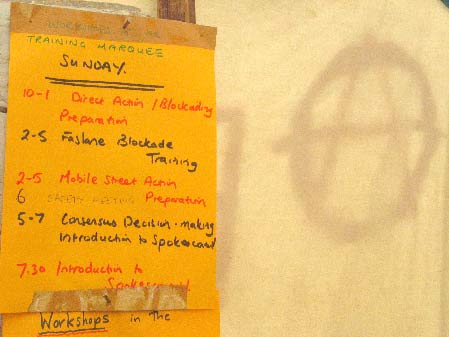 WORKSHOPS IN THE
TRAINING MARQUEE
SUNDAY.
10-1 Direct Action / Blockading
Preparation
2-5 Faslane Blockade
Training
2-5 Mobile Street Action
6 SAFETY MEETING Preparation
5-7 Consensus Decision-making
Introduction to Spokescouncil
7.30 Introduction to
Spokescouncil
Workshops in The